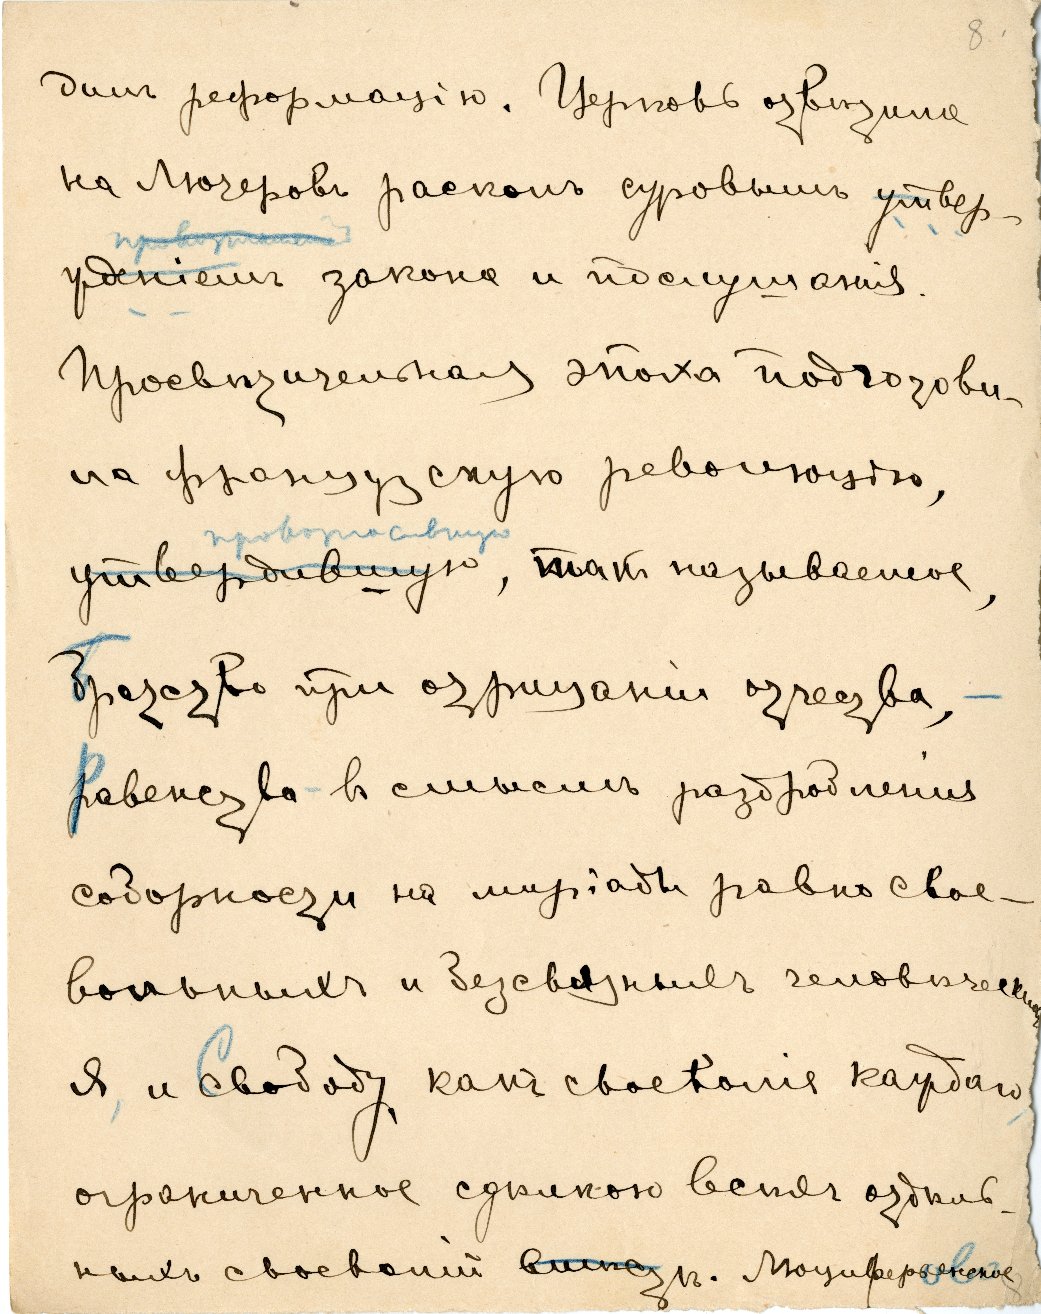 8.
дилъ реформацію. Церковь отвѣтила
на Лютеровъ расколъ суровымъ утвер-
жденіемъ закона и послушанія.
Просвѣтительная эпоха подготови-
ла французскую революцію,
провозгласившую
утвердившую, такъ называемое,
Братство при отрицаніи отчества, –
Равенство – въ смыслѣ раздробленія
соборности на миріады равно свое-
вольныхъ и безсвязныхъ человѣческихъ
я, и Свободу, какъ своеволія каждаго,
ограниченное сдѣлкою всѣхъ отдѣль-
ныхъ своеволій вмѣстѣ. Люциферовское